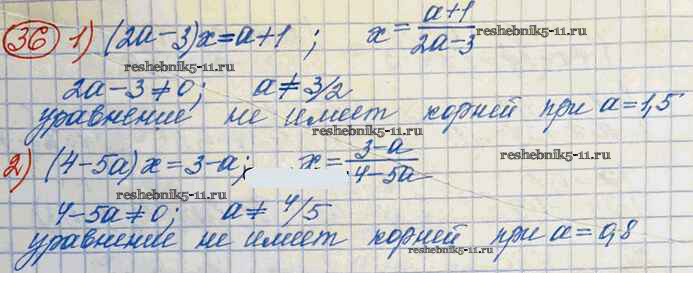 36 1) (2a-3)x=a+1 ; x = a+1/2a-3
reshebnik5-11.ru
reshebnik5-11.ru
2a-3≠0; a≠3/2
reshebnik5-11.ru
уравнение не имеет корней при a=1,5
reshebnik5-11.ru
2) (4-5a)x=3-a; x=3-a/4-5a
reshebnik5-11.ru
reshebnik5-11.ru
4-5a≠0; a≠4/5
reshebnik5-11.ru
уравнение не имеет корней при a=0,8
reshebnik5-11.ru